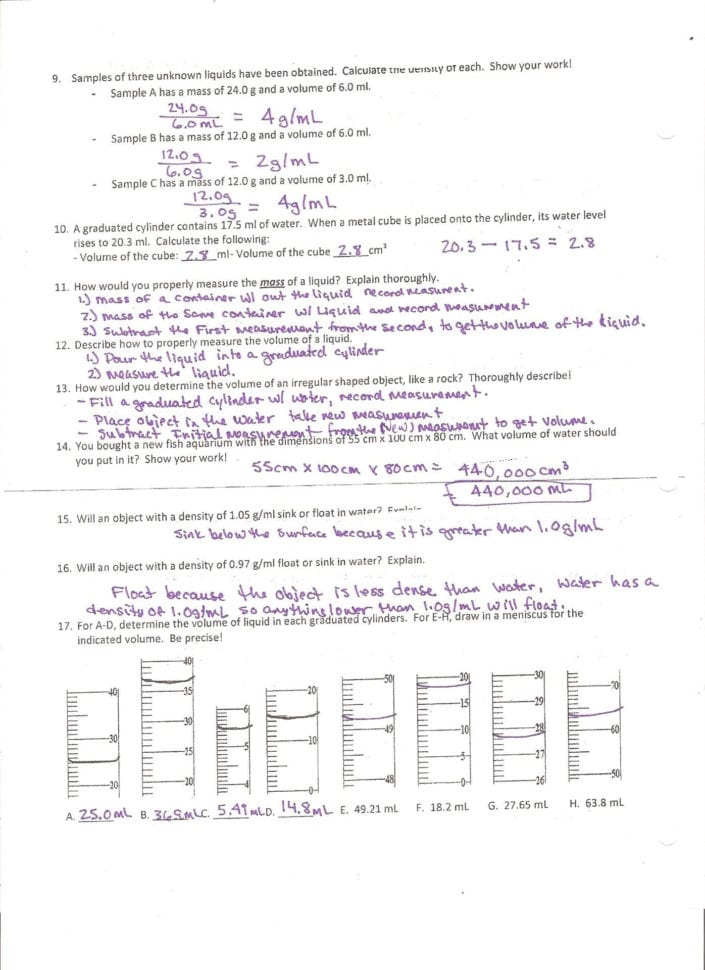 9. Samples of three unknown liquids have been obtained. Calculate the density of each. Show your work!
- Sample A has a mass of 24.0 g and a volume of 6.0 ml.
24.0g
6.0mL = 4g/mL
- Sample B has a mass of 12.0 g and a volume of 6.0 ml.
12.0g
6.0g = 2g/mL
- Sample C has a mass of 12.0 g and a volume of 3.0 ml.
12.0g
3.0g = 4g/mL
10. A graduated cylinder contains 17.5 ml of water. When a metal cube is placed onto the cylinder, its water level
rises to 20.3 ml. Calculate the following:
20.3 - 17.5 = 2.8
- Volume of the cube: 2.8 ml- Volume of the cube 2.8 cm³
11. How would you properly measure the mass of a liquid? Explain thoroughly.
1.) mass of a container w/ out the liquid record measurent.
2.) mass of the Same container w/ Liquid and record measurement
3.) Subtract the First measurement from the second, to get the volume of the liquid.
12. Describe how to properly measure the volume of a liquid.
1.) Pour the liquid into a graduated cylinder
2) measure the liquid.
13. How would you determine the volume of an irregular shaped object, like a rock? Thoroughly describe!
- Fill a graduated cylinder w/ water, record measurement.
- Place object in the water take new measurement
- Subtract Initial measurement from the (New) measurment to get Volume.
14. You bought a new fish aquarium with the dimensions of 55 cm x 100 cm x 80 cm. What volume of water should
you put in it? Show your work!
55cm x 100cm x 80cm = 440,000cm³
440,000 mL
15. Will an object with a density of 1.05 g/ml sink or float in water?
Sink below the surface because it is greater than 1.0g/mL
16. Will an object with a density of 0.97 g/ml float or sink in water? Explain.
Float because the object is less dense than water, water has a
density of 1.0g/mL so anything lower than 1.0g/mL will float.
17. For A-D, determine the volume of liquid in each graduated cylinders. For E-H, draw in a meniscus for the
indicated volume. Be precise!
40 30 20
40 35 30 25 20
6 5 4
20 10 0
50 49 48
20 15 10 5 0
30 29 28 27 26
70 60 50
A. 25.0mL B. 36.9mL C. 5.41mL D. 14.8mL E. 49.21 mL F. 18.2 mL G. 27.65 mL H. 63.8 mL